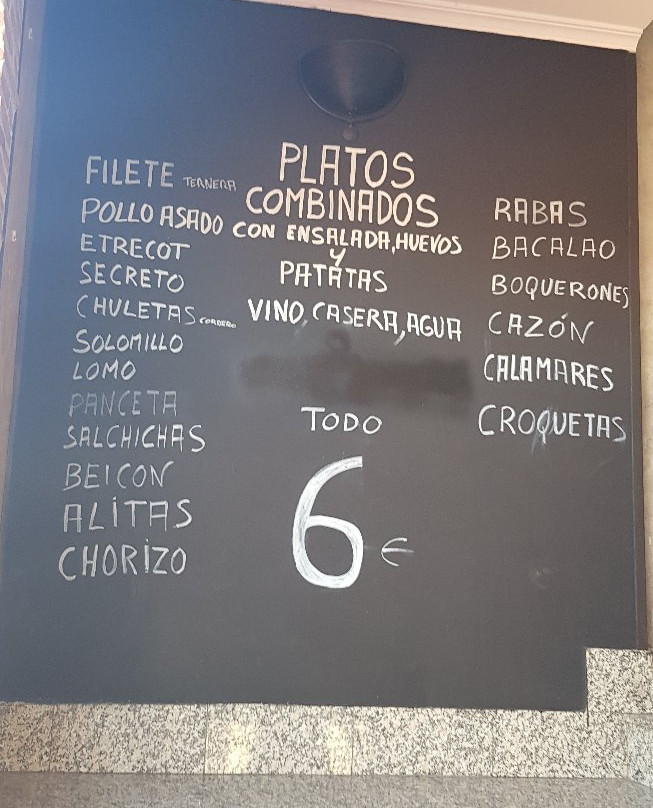 FILETE TERNERA
POLLO ASADO
ETRECOT
SECRETO
CHULETAS CORDERO
SOLOMILLO
LOMO
PANCETA
SALCHICHAS
BEICON
ALITAS
CHORIZO
PLATOS
COMBINADOS
CON ENSALADA, HUEVOS
Y
PATATAS
VINO, CASERA, AGUA
TODO
6 €
RABAS
BACALAO
BOQUERONES
CAZÓN
CALAMARES
CROQUETAS